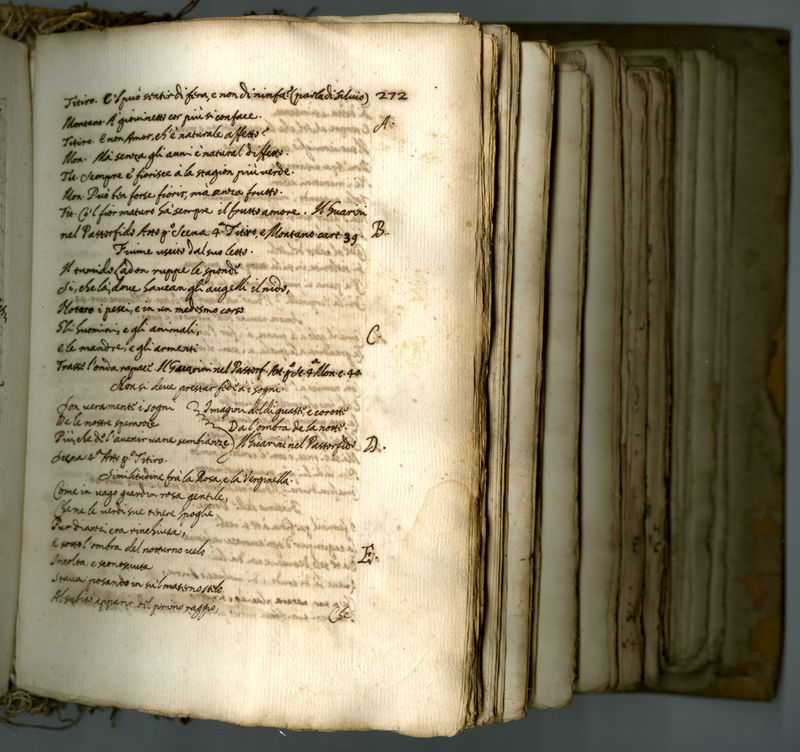 Titiro. E'l può sentir di fera, e non di ninfa? (parla di Silvio) 272
Montan. A' giovinetto cor più si conface. A.
Titiro. E non Amor, ch'è naturale affetto?
Mon. Mà senza gli anni è natural difetto.
Tit. Sempre e' fiorisce à la stagion più verde.
Mon. Può ben forse fiorir, mà senza frutto.
Tit. Co'l fior maturo hà sempre il frutto amore. Il Guarini
nel Pastorfido Atto p.º Scena 4.ª Titiro, e Montano cart. 39. B.
Fiume uscito dal suo letto.
Il tumido Ladon ruppe le sponde
Sì, che là, dove havean gli augelli il nido,
Notaro i pesci, e in un medesmo corso
Gli huomini, e gli animali, C.
e le mandre, e gli armenti
Trasse l'onda rapace. Il Guarini nel Pastorf. Att. p.º Sc. 4.ª Mon. c. 40
Non si deve prestar fede à i sogni.
Son veramente i sogni
De le nostre speranze
Più, che de l'avenir vane sembianze
Imagini del dì guaste, e corotte
Da l'ombra de la notte.
Il Guarini nel Pastorfido D.
Scena 4.ª Atto p.º Titiro.
Similitudine frà la Rosa, e la Verginella.
Come in vago giardin rosa gentile,
Che ne le verdi sue tenere spoglie
Pur dianzi era rinchiusa,
e sotto l'ombra del notturno velo E.
Incolta e sconosciuta
Stava posando in sù'l materno stelo.
Al subito apparir del primo raggio,
Che